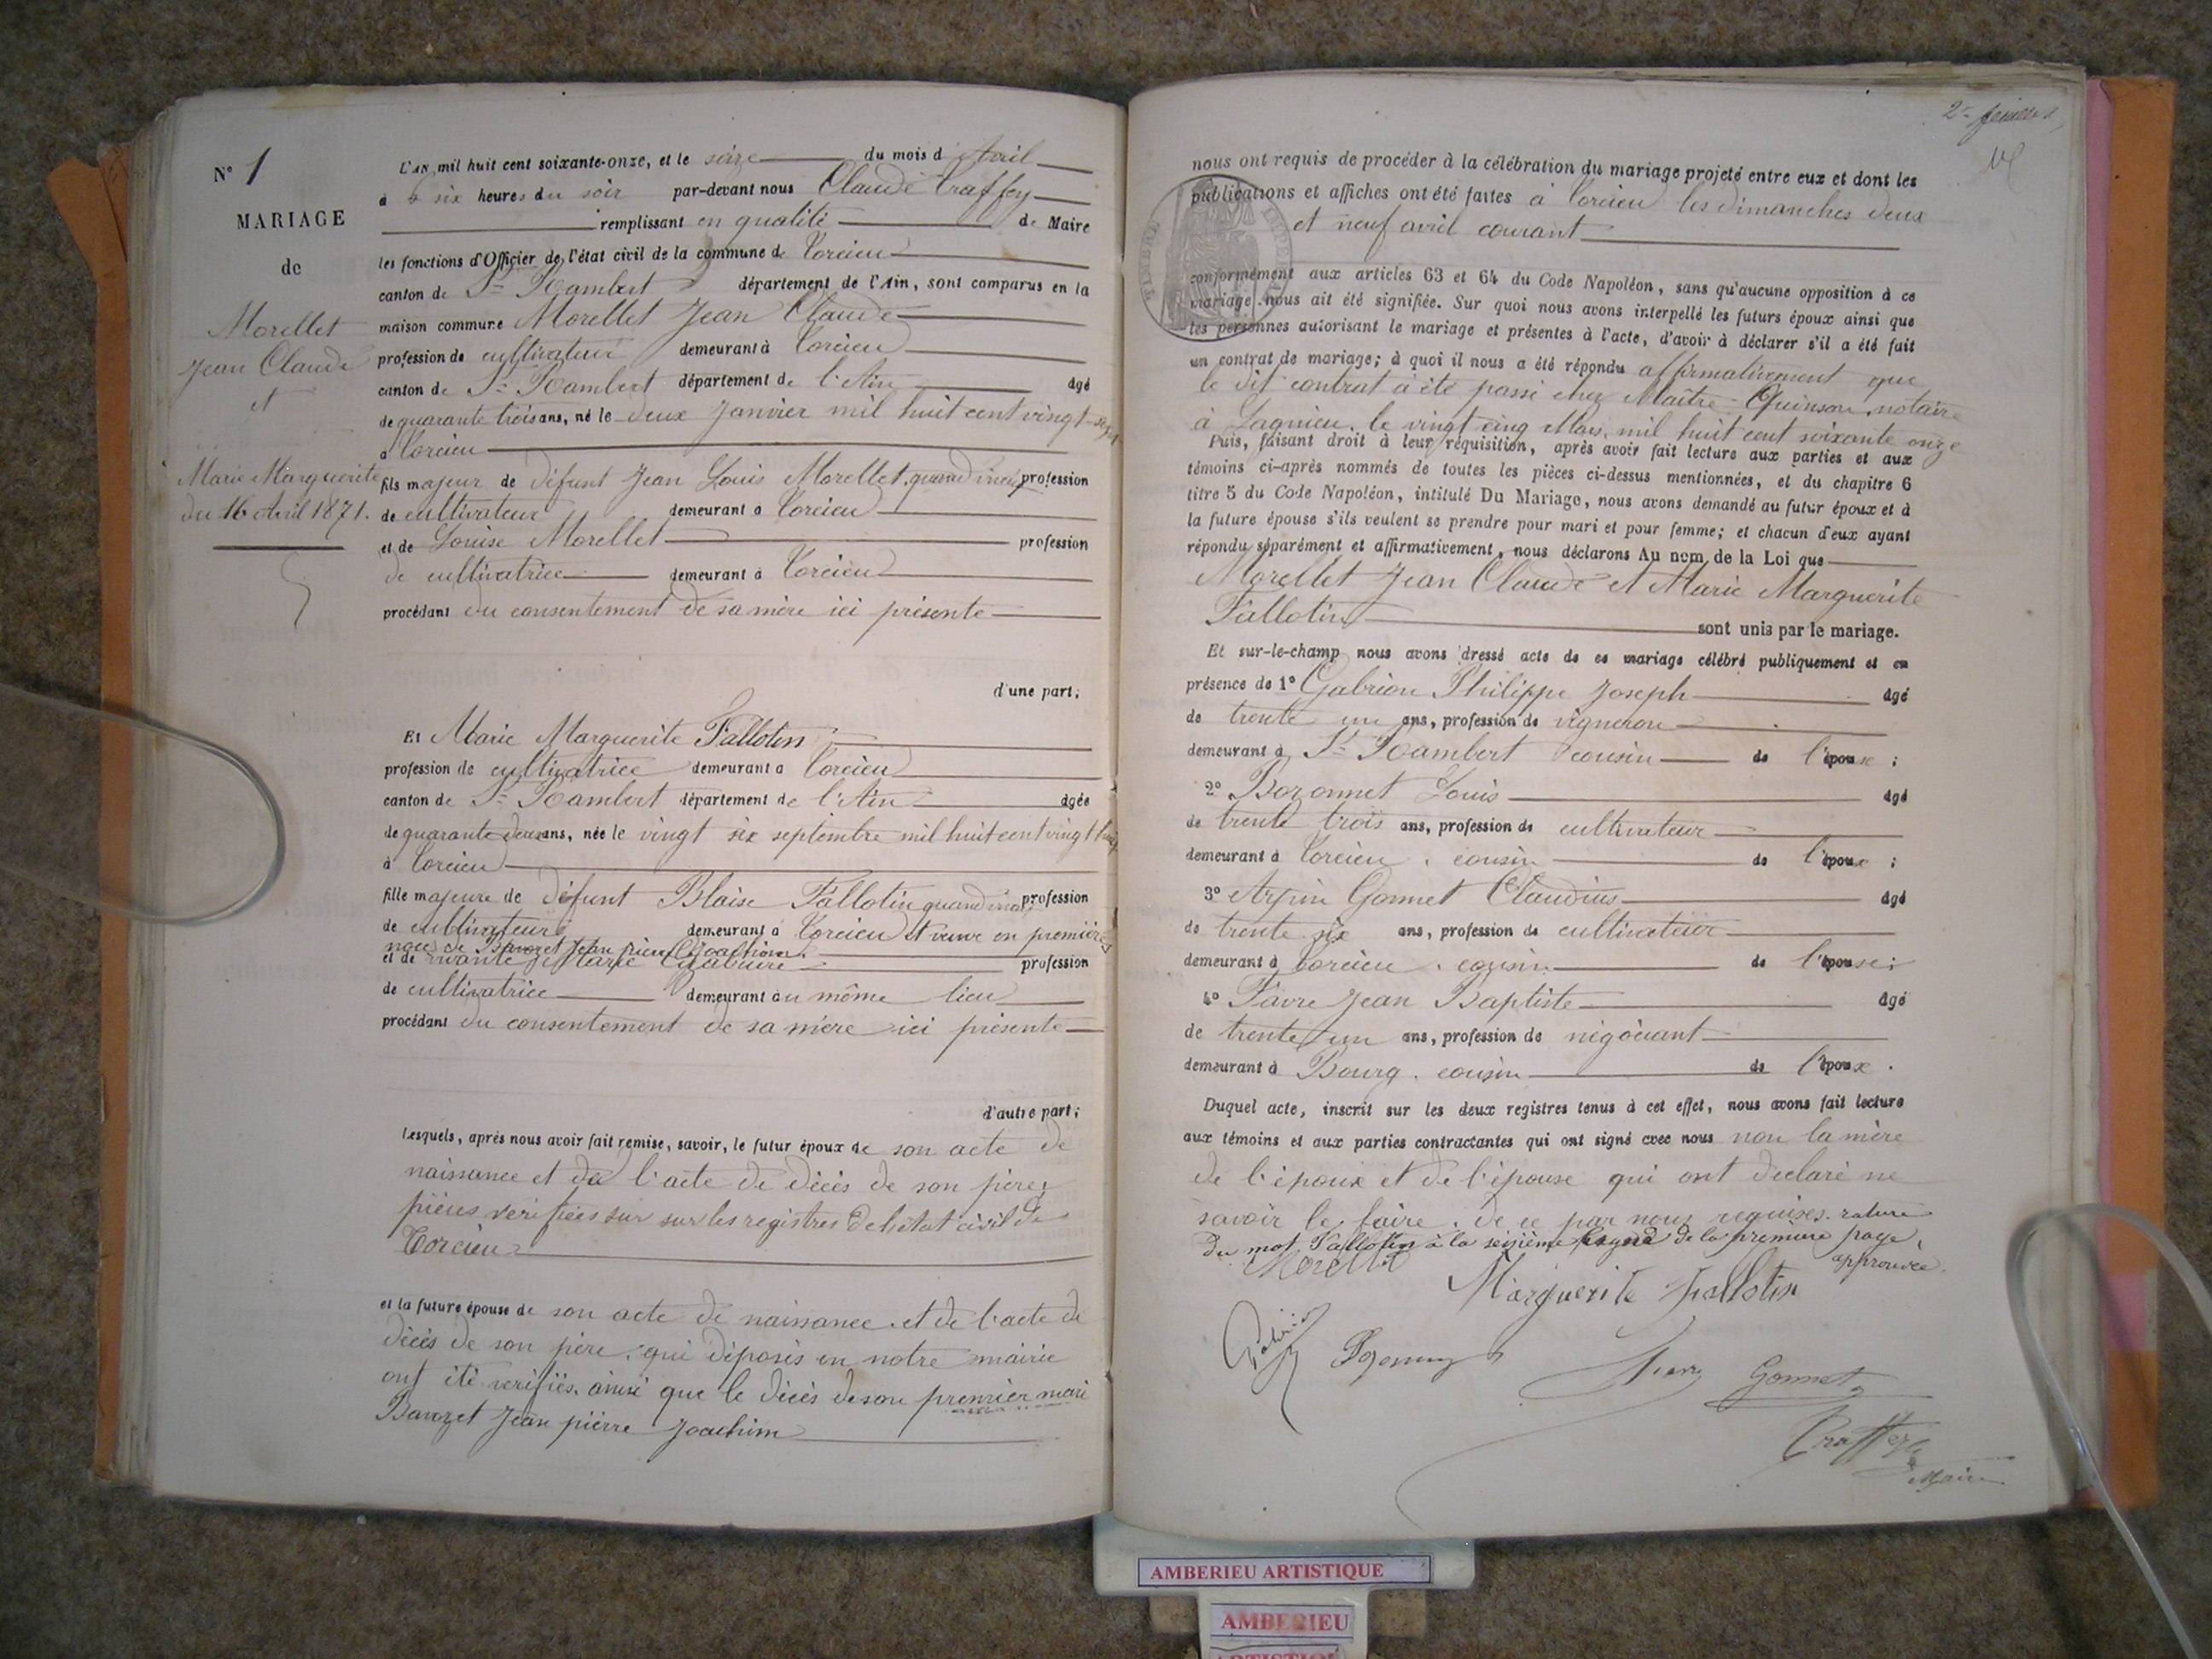 N° 1
MARIAGE
de
Morellet
Jean Claude
et
Marie Marguerite
du 16 Avril 1871.
L'AN mil huit cent soixante-onze, et le seize du mois d'Avril
à six heures du soir par-devant nous Claude Traffey
remplissant en qualité de Maire
les fonctions d'Officier de l'état civil de la commune de Torcieu
canton de St Rambert département de l'Ain, sont comparus en la
maison commune Morellet Jean Claude
profession de cultivateur demeurant à Torcieu
canton de St Rambert département de l'Ain âgé
de quarante trois ans, né le deux Janvier mil huit cent vingt
à Torcieu
fils majeur de défunt Jean Louis Morellet quand vivait profession
de cultivateur demeurant à Torcieu
et de Louise Morellet profession
de cultivatrice demeurant à Torcieu
procédant du consentement de sa mère ici présente
d'une part;
Et Marie Marguerite Fallotin
profession de cultivatrice demeurant à Torcieu
canton de St Rambert département de l'Ain âgée
de quarante deux ans, née le vingt six septembre mil huit cent vingt huit
à Torcieu
fille majeure de défunt Blaise Fallotin quand vivait profession
de cultivateur demeurant à Torcieu et veuve en premières
noces de Bavozet Jean pierre Joachim.
et de vivante Marie profession
de cultivatrice demeurant au même lieu
procédant du consentement de sa mère ici présente
d'autre part;
Lesquels, après nous avoir fait remise, savoir, le futur époux de son acte de
naissance et de l'acte de décès de son père,
pièces verifiées sur sur les registres de l'état civil de
Torcieu
et la future épouse de son acte de naissance et de l'acte de
décès de son père, qui déposés en notre mairie
ont été verifiés, ainsi que le décès de son premier mari
Bavozet Jean pierre Joachim
2e feuillet
nous ont requis de procéder à la célébration du mariage projeté entre eux et dont les
publications et affiches ont été faites à Torcieu les dimanches deux
et neuf avril courant
conformément aux articles 63 et 64 du Code Napoléon, sans qu'aucune opposition à ce
mariage nous ait été signifiée. Sur quoi nous avons interpellé les futurs époux ainsi que
les personnes autorisant le mariage et présentes à l'acte, d'avoir à déclarer s'il a été fait
un contrat de mariage; à quoi il nous a été répondu affirmativement que
le dit contrat a été passé chez Maître Quinson, notaire
à Lagnieu, le vingt cinq Mars, mil huit cent soixante onze
Puis, faisant droit à leur réquisition, après avoir fait lecture aux parties et aux
témoins ci-après nommés de toutes les pièces ci-dessus mentionnées, et du chapitre 6
titre 5 du Code Napoléon, intitulé Du Mariage, nous avons demandé au futur époux et à
la future épouse s'ils veulent se prendre pour mari et pour femme; et chacun d'eux ayant
répondu séparément et affirmativement, nous déclarons Au nom de la Loi que
Morellet Jean Claude et Marie Marguerite
Fallotin
sont unis par le mariage.
Et sur-le-champ nous avons dressé acte de ce mariage célébré publiquement et en
présence de 1° Gabrion Philippe Joseph âgé
de trente un ans, profession de vigneron
demeurant à St Rambert cousin de l'épouse;
2° Bozonnet Louis âgé
de trente trois ans, profession de cultivateur
demeurant à Torcieu, cousin de l'époux;
3° Arpin Gonnet Claudius âgé
de trente six ans, profession de cultivateur
demeurant à Torcieu, cousin de l'épouse;
4° Favre Jean Baptiste âgé
de trente un ans, profession de négociant
demeurant à Bourg, cousin de l'époux.
Duquel acte, inscrit sur les deux registres tenus à cet effet, nous avons fait lecture
aux témoins et aux parties contractantes qui ont signé avec nous non la mère
de l'époux et de l'épouse qui ont declaré ne
savoir le faire, de ce par nous requises. rature
du mot Fallotin à la seizième ligne de la première page,
approuvée.
Morellet
Marguerite Fallotin
Gonnet
Traffey
Maire
AMBERIEU ARTISTIQUE
AMBERIEU
ARTISTIQUE